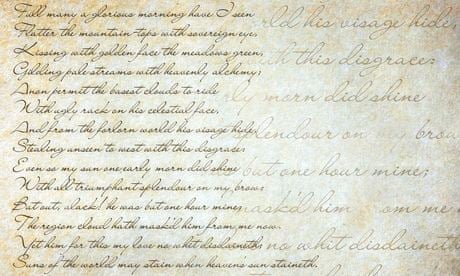 Full many a glorious morning have I seen
Flatter the mountain-tops with sovereign eye,
Kissing with golden face the meadows green,
Gilding pale streams with heavenly alchemy;
Anon permit the basest clouds to ride
With ugly rack on his celestial face,
And from the forlorn world his visage hide,
Stealing unseen to west with this disgrace:
Even so my sun one early morn did shine
With all triumphant splendour on my brow;
But out, alack! he was but one hour mine;
The region cloud hath mask'd him from me now.
Yet him for this my love no whit disdaineth;
Suns of the world may stain when heaven's sun staineth.
rld his visage hide,
th this disgrace:
rly morn did shine
plendour on my brow
but one hour mine;
mask'd him om me n
no whit disdaineth